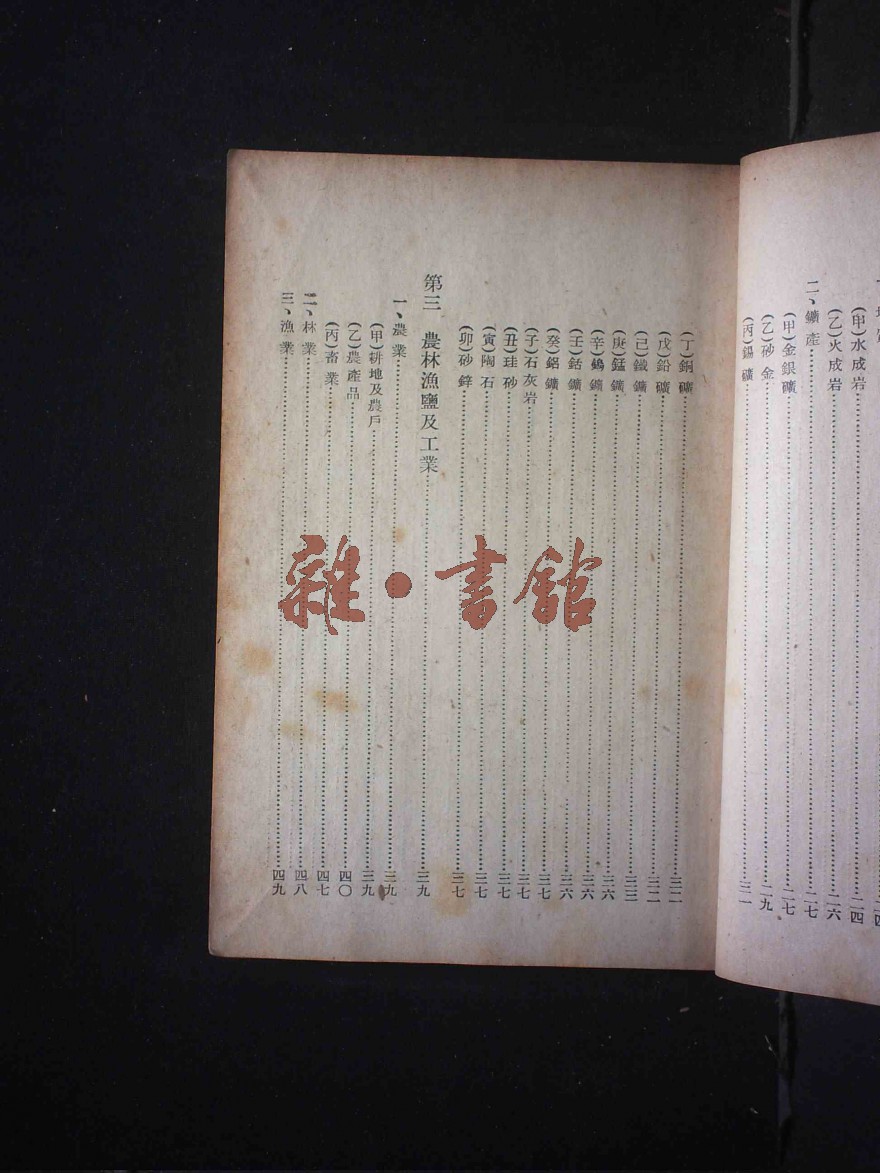 二、鑛產……二七
(甲)水成岩……二四
(乙)火成岩……二六
(甲)金銀礦……二七
(乙)砂金……二九
(丙)錫礦……三一
(丁)銅礦……三二
(戊)鉛礦……三二
(己)鐵鑛……三三
(庚)錳鑛……三六
(辛)鎢鑛……三六
(壬)鈷鑛……三六
(癸)鋁鑛……三七
(子)石灰岩……三七
(丑)珪砂……三七
(寅)陶石……三七
(卯)砂鋅……三七
第三 農林漁鹽及工業……三九
一、農業……三九
(甲)耕地及農戶……三九
(乙)農產品……四〇
(丙)畜業……四七
二、林業……四八
三、漁業……四九
雜·書館